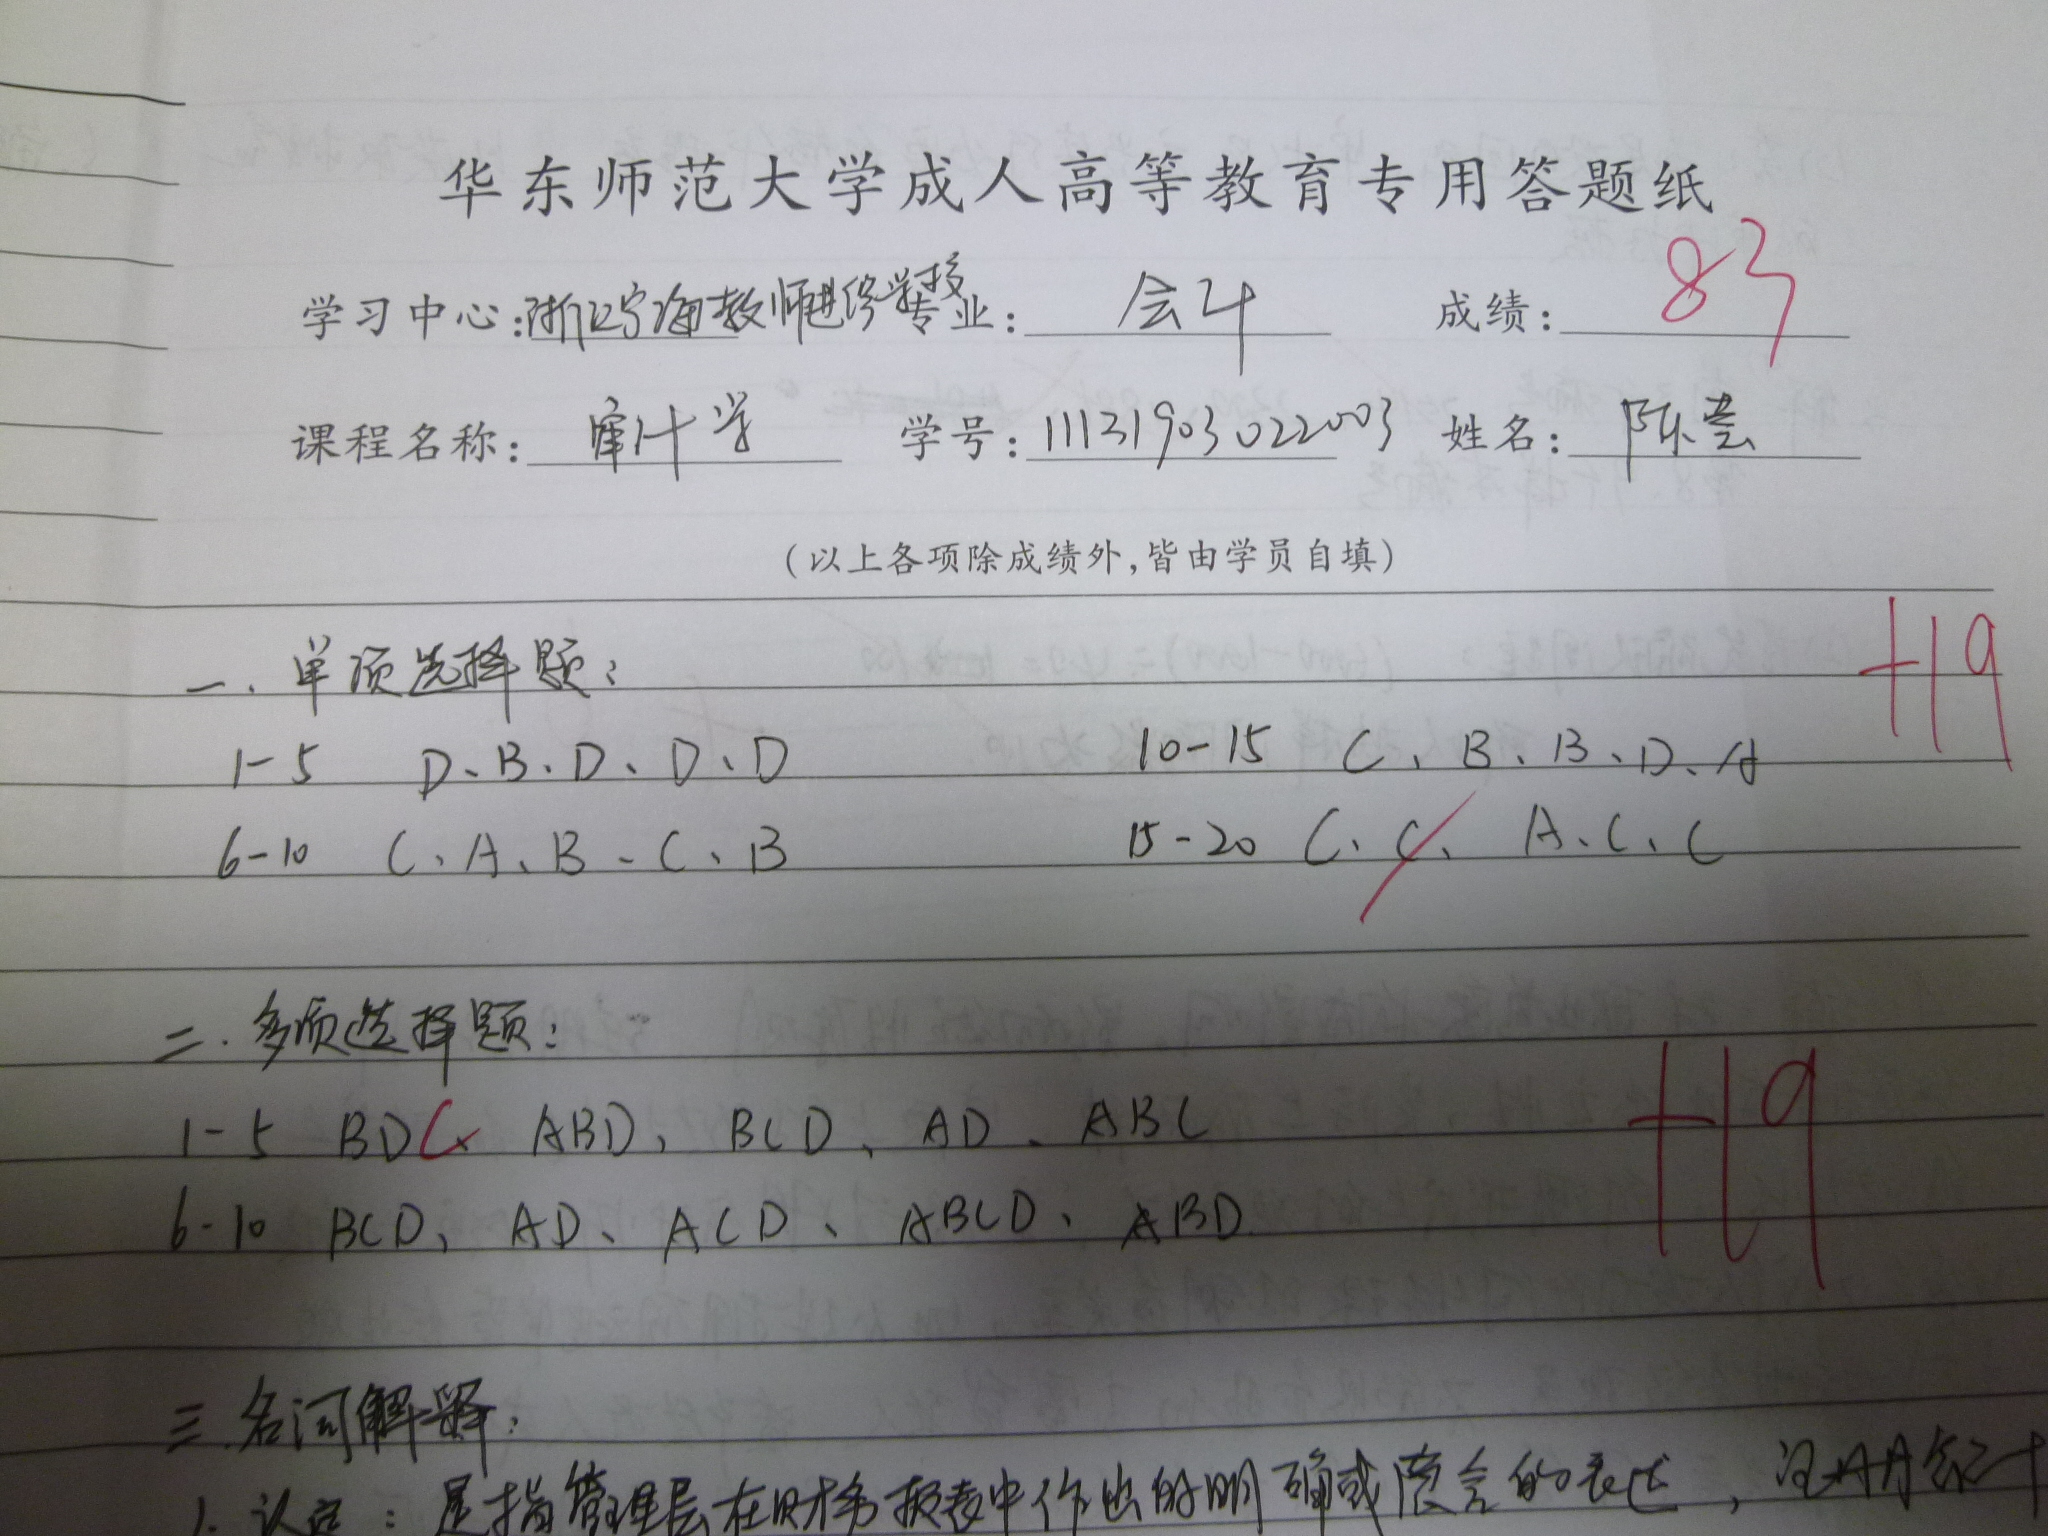 华东师范大学成人高等教育专用答题纸
学习中心:浙江宁海教师进修学校 专业:会计 成绩:83
课程名称:审计学 学号:11131903022003 姓名:陈芸
(以上各项除成绩外,皆由学员自填)
一.单项选择题: +19
1-5 D、B、D、D、D 10-15 C、B、B、D、A
6-10 C、A、B、C、B 15-20 C、C、A、C、C
二.多项选择题: +19
1-5 BDC ABD、BCD、AD、ABC
6-10 BCD、AD、ACD、ABCD、ABD
三.名词解释:
1.认定:是指管理层在财务报表中作出的明确或隐含的表达,注册会计